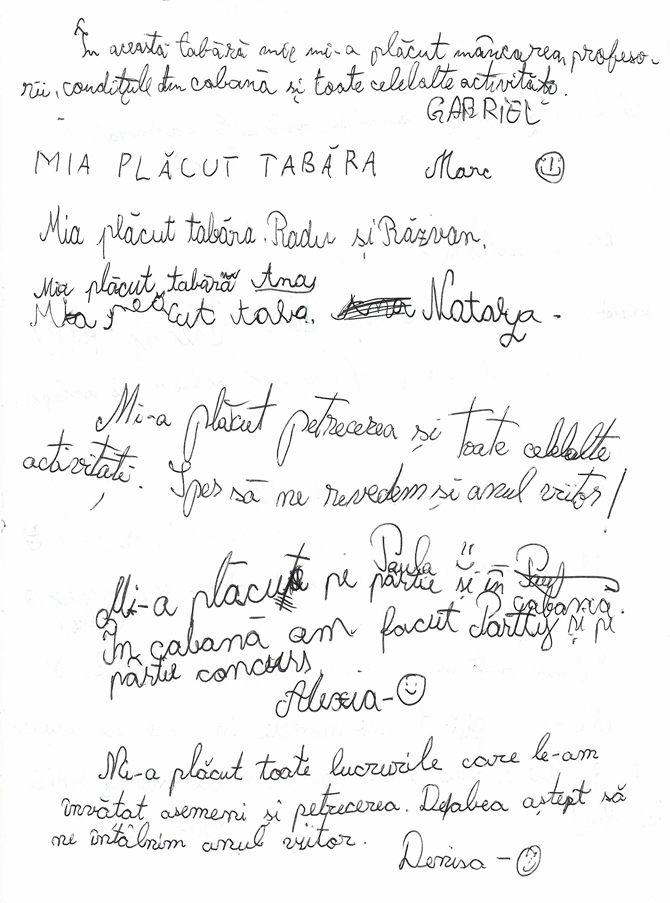 În aceastā tabără mie mi-a plăcut mâncarea, profeso-
rii, condițiile din cabană și toate celelalte activități.
GABRIEL
MIA PLĂCUT TABĂRA Marc
Mia plăcut tabăra. Radu și Răzvan.
Mia plăcut tabăra Ana
Mia placut taba. Natalya -
Mi-a plăcut petrecerea și toate celelalte
activități. Sper să ne revedem și anul viitor!
Paula
Mi-a placut pe pârtie și în cabana.
În cabană am facut Partty și pe
pârtie concurs
Alexia -
Mi-a plăcut toate lucrurile care le-am
învătat asemeni și petrecerea. Deabea aștept să
ne întâlnim anul viitor.
Denisa -